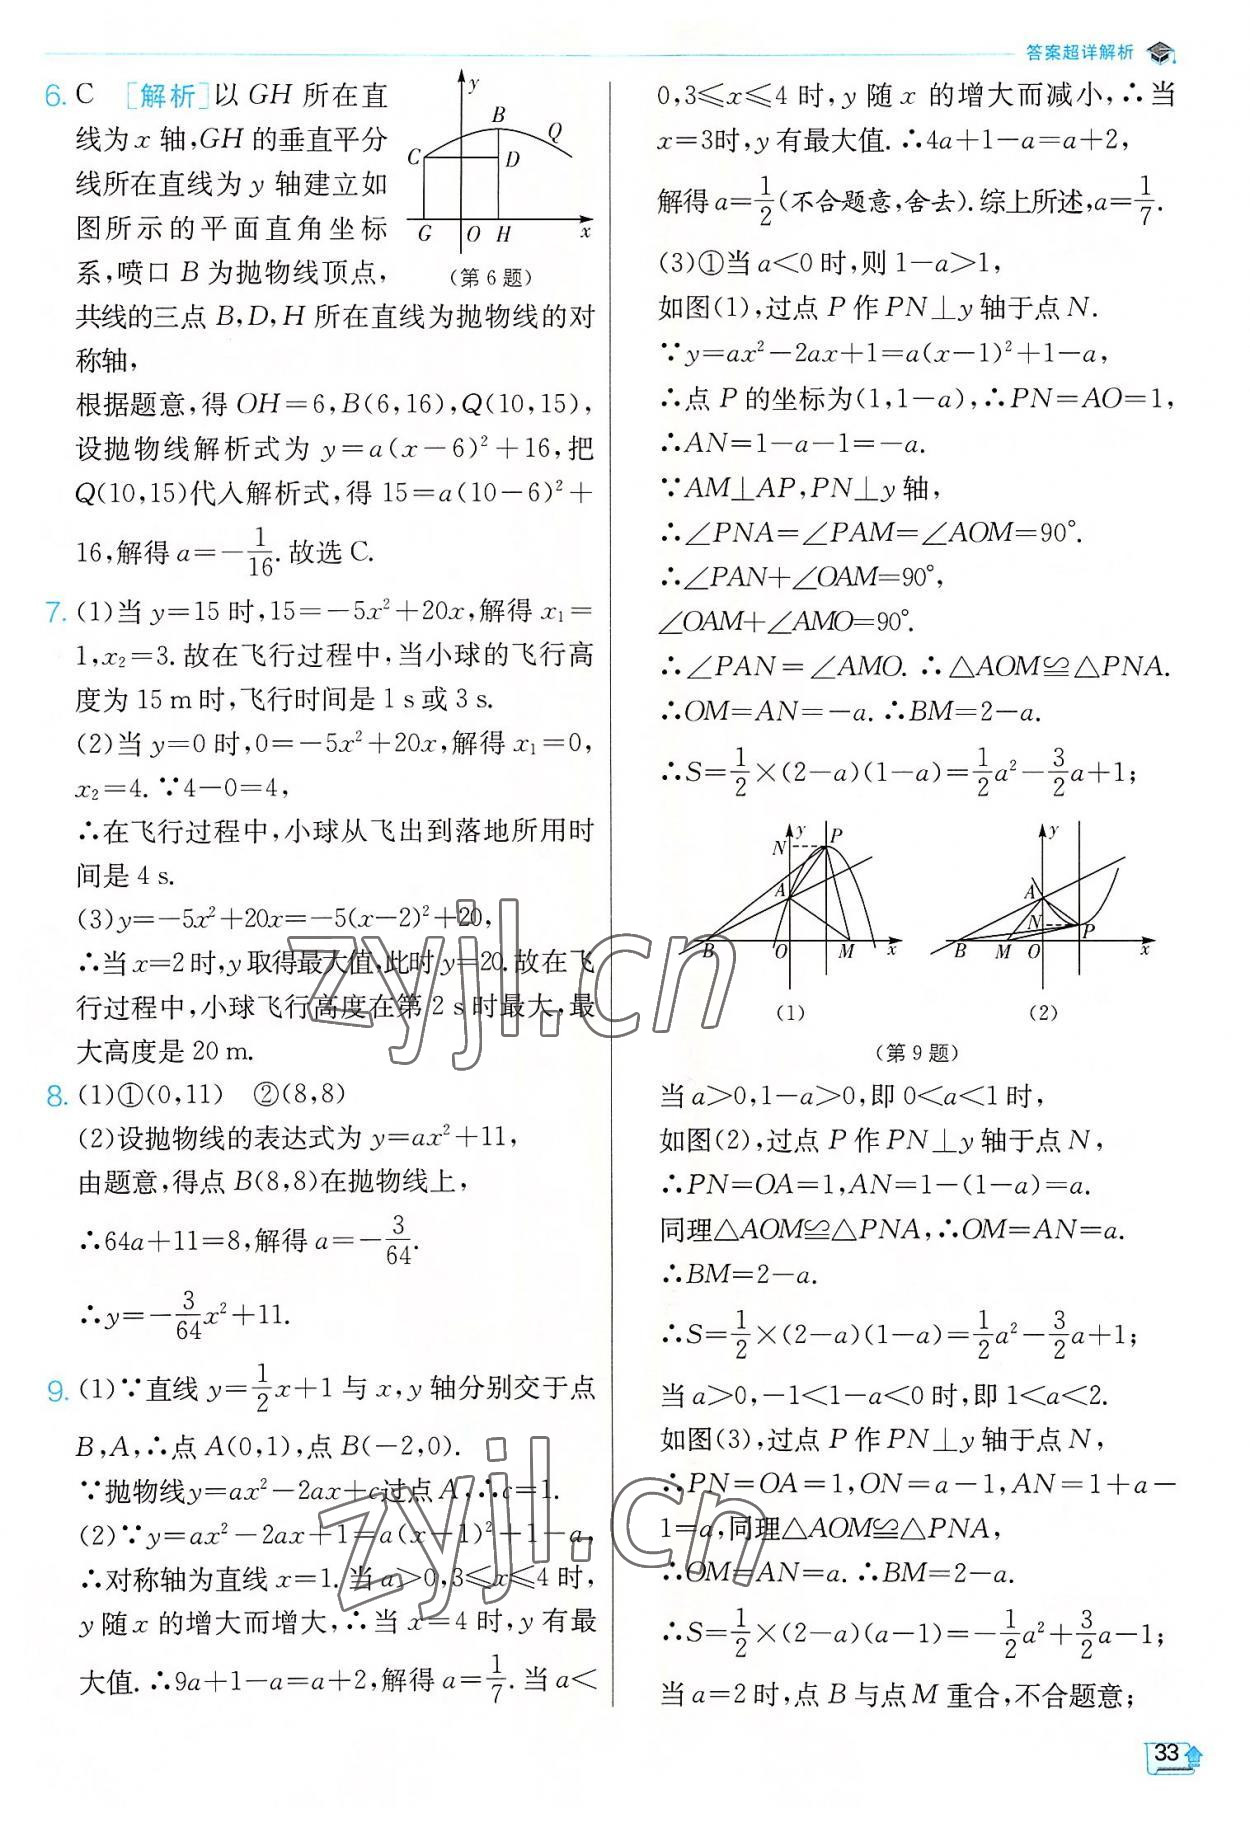 答案超详解析
6. C [解析]以 GH 所在直
线为 x 轴,GH 的垂直平分
线所在直线为 y 轴建立如
图所示的平面直角坐标
系,喷口 B 为抛物线顶点,
y
B
Q
C
D
G
O
H
x
(第 6 题)
共线的三点 B,D,H 所在直线为抛物线的对
称轴,
根据题意,得 OH=6,B(6,16),Q(10,15),
设抛物线解析式为 y=a(x-6)²+16,把
Q(10,15)代入解析式,得 15=a(10-6)²+
16,解得 a=-1/16.故选 C.
7. (1)当 y=15 时,15=-5x²+20x,解得 x₁=
1,x₂=3.故在飞行过程中,当小球的飞行高
度为 15 m 时,飞行时间是 1 s 或 3 s.
(2)当 y=0 时,0=-5x²+20x,解得 x₁=0,
x₂=4.∵4-0=4,
∴在飞行过程中,小球从飞出到落地所用时
间是 4 s.
(3)y=-5x²+20x=-5(x-2)²+20,
∴当 x=2 时,y 取得最大值,此时 y=20.故在飞
行过程中,小球飞行高度在第 2 s 时最大,最
大高度是 20 m.
8. (1)①(0,11) ②(8,8)
(2)设抛物线的表达式为 y=ax²+11,
由题意,得点 B(8,8)在抛物线上,
∴64a+11=8,解得 a=-3/64.
∴y=-3/64x²+11.
9. (1)∵直线 y=1/2x+1 与 x,y 轴分别交于点
B,A,∴点 A(0,1),点 B(-2,0).
∵抛物线y=ax²-2ax+c过点 A,∴c=1.
(2)∵y=ax²-2ax+1=a(x-1)²+1-a,
∴对称轴为直线 x=1.当 a>0,3≤x≤4 时,
y 随 x 的增大而增大,∴当 x=4 时,y 有最
大值.∴9a+1-a=a+2,解得 a=1/7.当 a<
0,3≤x≤4 时,y 随 x 的增大而减小,∴当
x=3时,y 有最大值.∴4a+1-a=a+2,
解得 a=1/2(不合题意,舍去).综上所述,a=1/7.
(3)①当 a<0 时,则 1-a>1,
如图(1),过点 P 作 PN⊥y 轴于点 N.
∵y=ax²-2ax+1=a(x-1)²+1-a,
∴点 P 的坐标为(1,1-a),∴PN=AO=1,
∴AN=1-a-1=-a.
∵AM⊥AP,PN⊥y 轴,
∴∠PNA=∠PAM=∠AOM=90°.
∴∠PAN+∠OAM=90°,
∠OAM+∠AMO=90°.
∴∠PAN=∠AMO.∴△AOM≌△PNA.
∴OM=AN=-a.∴BM=2-a.
∴S=1/2×(2-a)(1-a)=1/2a²-3/2a+1;
N
y
P
A
B
O
M
x
(1)
y
A
N
P
B
M
O
x
(2)
(第 9 题)
当 a>0,1-a>0,即 0<a<1 时,
如图(2),过点 P 作 PN⊥y 轴于点 N,
∴PN=OA=1,AN=1-(1-a)=a.
同理△AOM≌△PNA,∴OM=AN=a.
∴BM=2-a.
∴S=1/2×(2-a)(1-a)=1/2a²-3/2a+1;
当 a>0,-1<1-a<0 时,即 1<a<2.
如图(3),过点 P 作 PN⊥y 轴于点 N,
∴PN=OA=1,ON=a-1,AN=1+a-
1=a,同理△AOM≌△PNA,
∴OM=AN=a.∴BM=2-a.
∴S=1/2×(2-a)(a-1)=-1/2a²+3/2a-1;
当 a=2 时,点 B 与点 M 重合,不合题意;
zyjl.cn
zyjl.cn
33